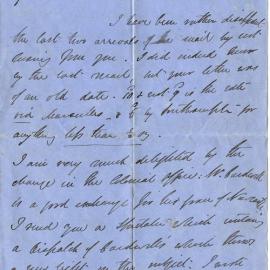 I have been rather disappt
the last two arrivals of the mail by not
hearing from you. I did indeed hear
by the last mail, but your letter was
of an old date. is the rate
via Marseilles, & by Southampton for
anything less than ½ oz.
I am very much delighted by the
change in the Colonial Office: Mr Cardwell
is a good exchange for his grace of Newcastle
I send you a Spectator which contains
a dispatch of Cardwells which throws
a new light on the subject. I wrote